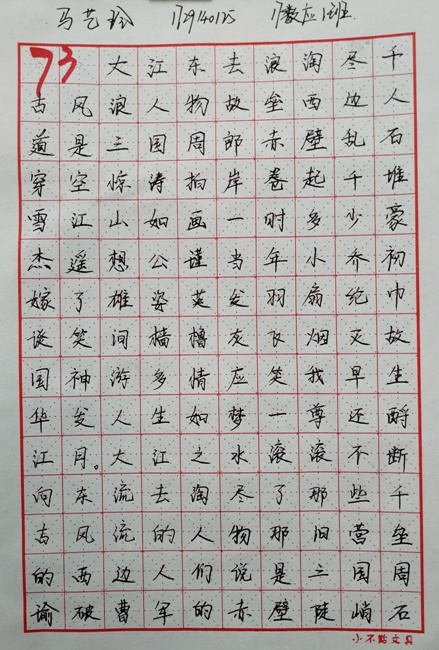 马艺玲 1729140125 17数应1班
73 大江东去浪淘尽千
古风浪人物故垒西边人
道是三国周郎赤壁乱石
穿空惊涛拍岸卷起千堆
雪江山如画一时多少豪
杰遥想公谨当年小乔初
嫁了雄姿英发羽扇纶巾
谈笑间樯橹灰飞烟灭故
国神游多情应笑我早生
华发人生如梦一尊还酹
江月。大江之水滚滚不断
向东流去淘尽了那些千
古风流的人物那旧营垒
的西边人们说是三国周
谕破曹军的赤壁陡峭石
小不點文具